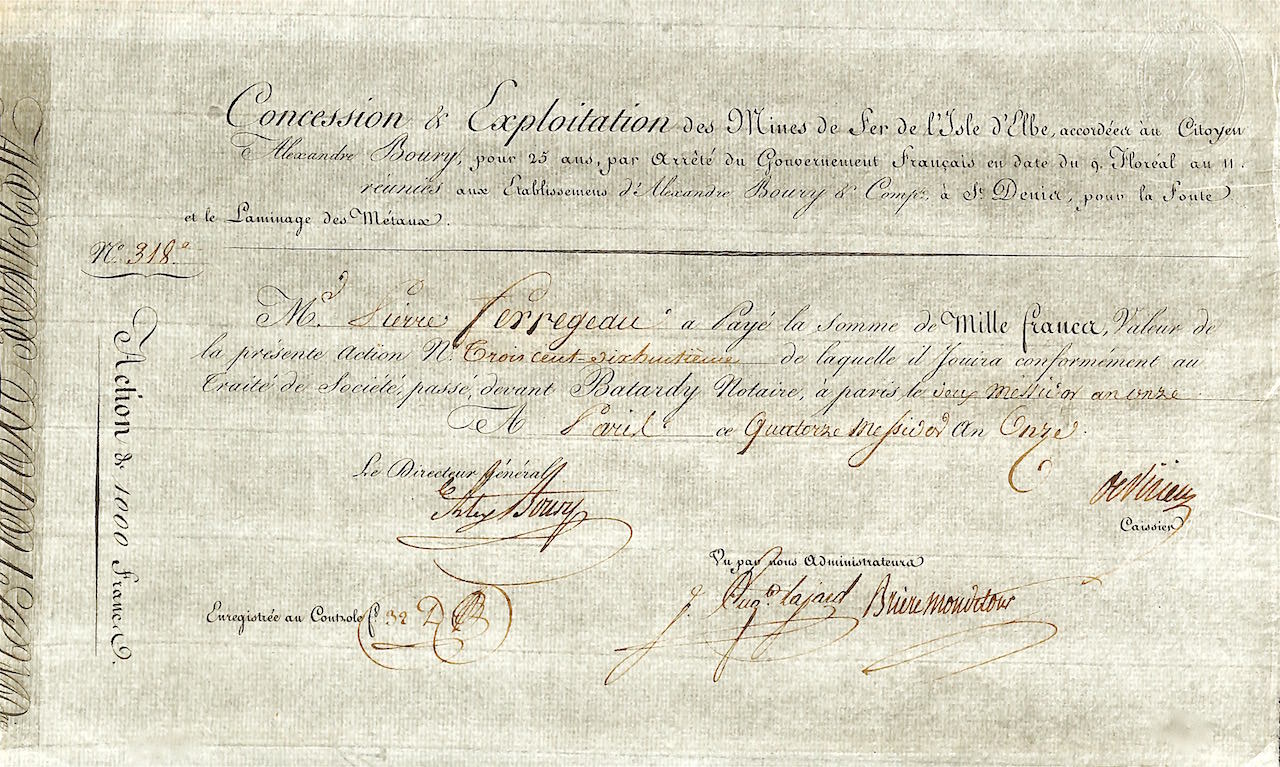 Concession & Exploitation des Mines de Fer de l'Isle d'Elbe, accordées au Citoyen
Alexandre Boury, pour 25 ans, par Arrêté du Gouvernement Français en date du 9. Floréal an 11.
réunies aux Etablissemens d'Alexandre Boury & Comp.ie, à St. Denis, pour la Fonte
et le Laminage des Métaux.
N.o 318.e
Action de 1000 Francs.
M.r Pierre Perregeau a Payé la somme de Mille francs, Valeur de
la présente Action N.o Trois cent-dixhuitieme de laquelle il Jouira conformément au
Traité de Société, passé, devant Batardy Notaire, à paris le deux Messidor an onze
A Paris ce Quatorze Messidor An Onze.
Le Directeur Général
Alex Boury
Caissier
Vu par nous Administrateurs
Lajard Brière Mondétour
Enregistrée au Controle f.o 32